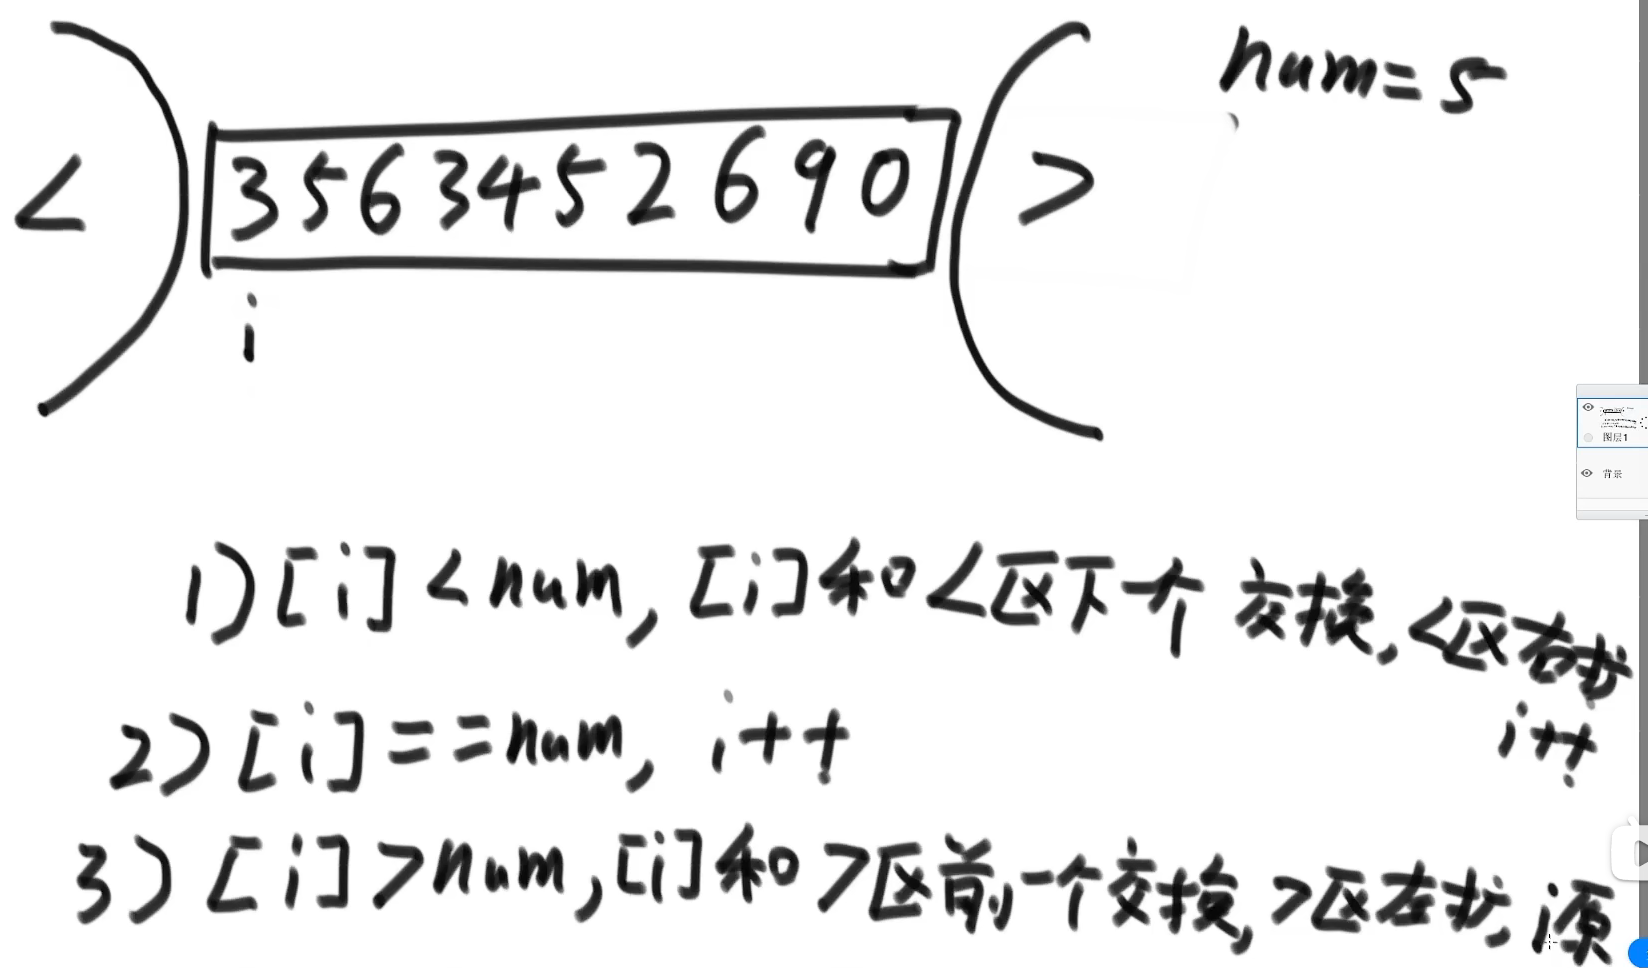 num=5
< 3 5 6 3 4 5 2 6 9 0 >
i
图层1
背景
1) [i] < num, [i]和<区下一个 交换, <区右扩
i++
2) [i] == num, i++
3) [i] > num, [i]和>区前一个交换, >区左扩, i源